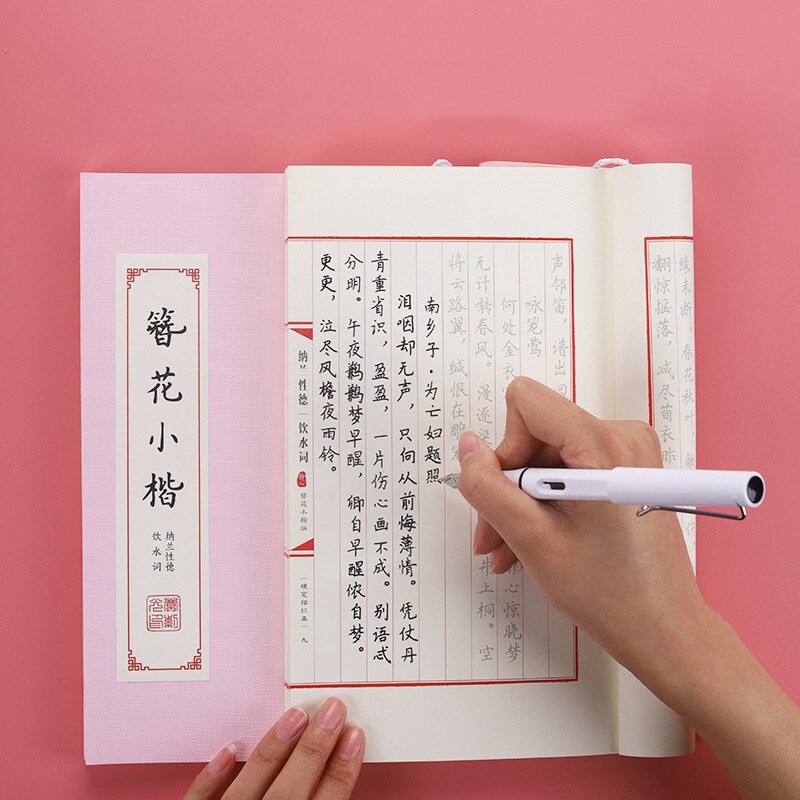 簪花小楷
纳兰性德
饮水词
缘未断，春花秋叶，触
翻惊摇落，减尽荀衣昨
声邻笛，谱出回
咏笼莺
何处金衣 心惊晓梦
无计啭春风。漫逐梁 井上桐。空
将云路翼，缄恨在雕
南乡子·为亡妇题照
泪咽却无声，只向从前悔薄情。凭仗丹
青重省识，盈盈，一片伤心画不成。别语忒
分明。午夜鹣鹣梦早醒，卿自早醒侬自梦。
更更，泣尽风檐夜雨铃。
纳兰性德｜饮水词 簪花小楷版
（硬笔描红本）九